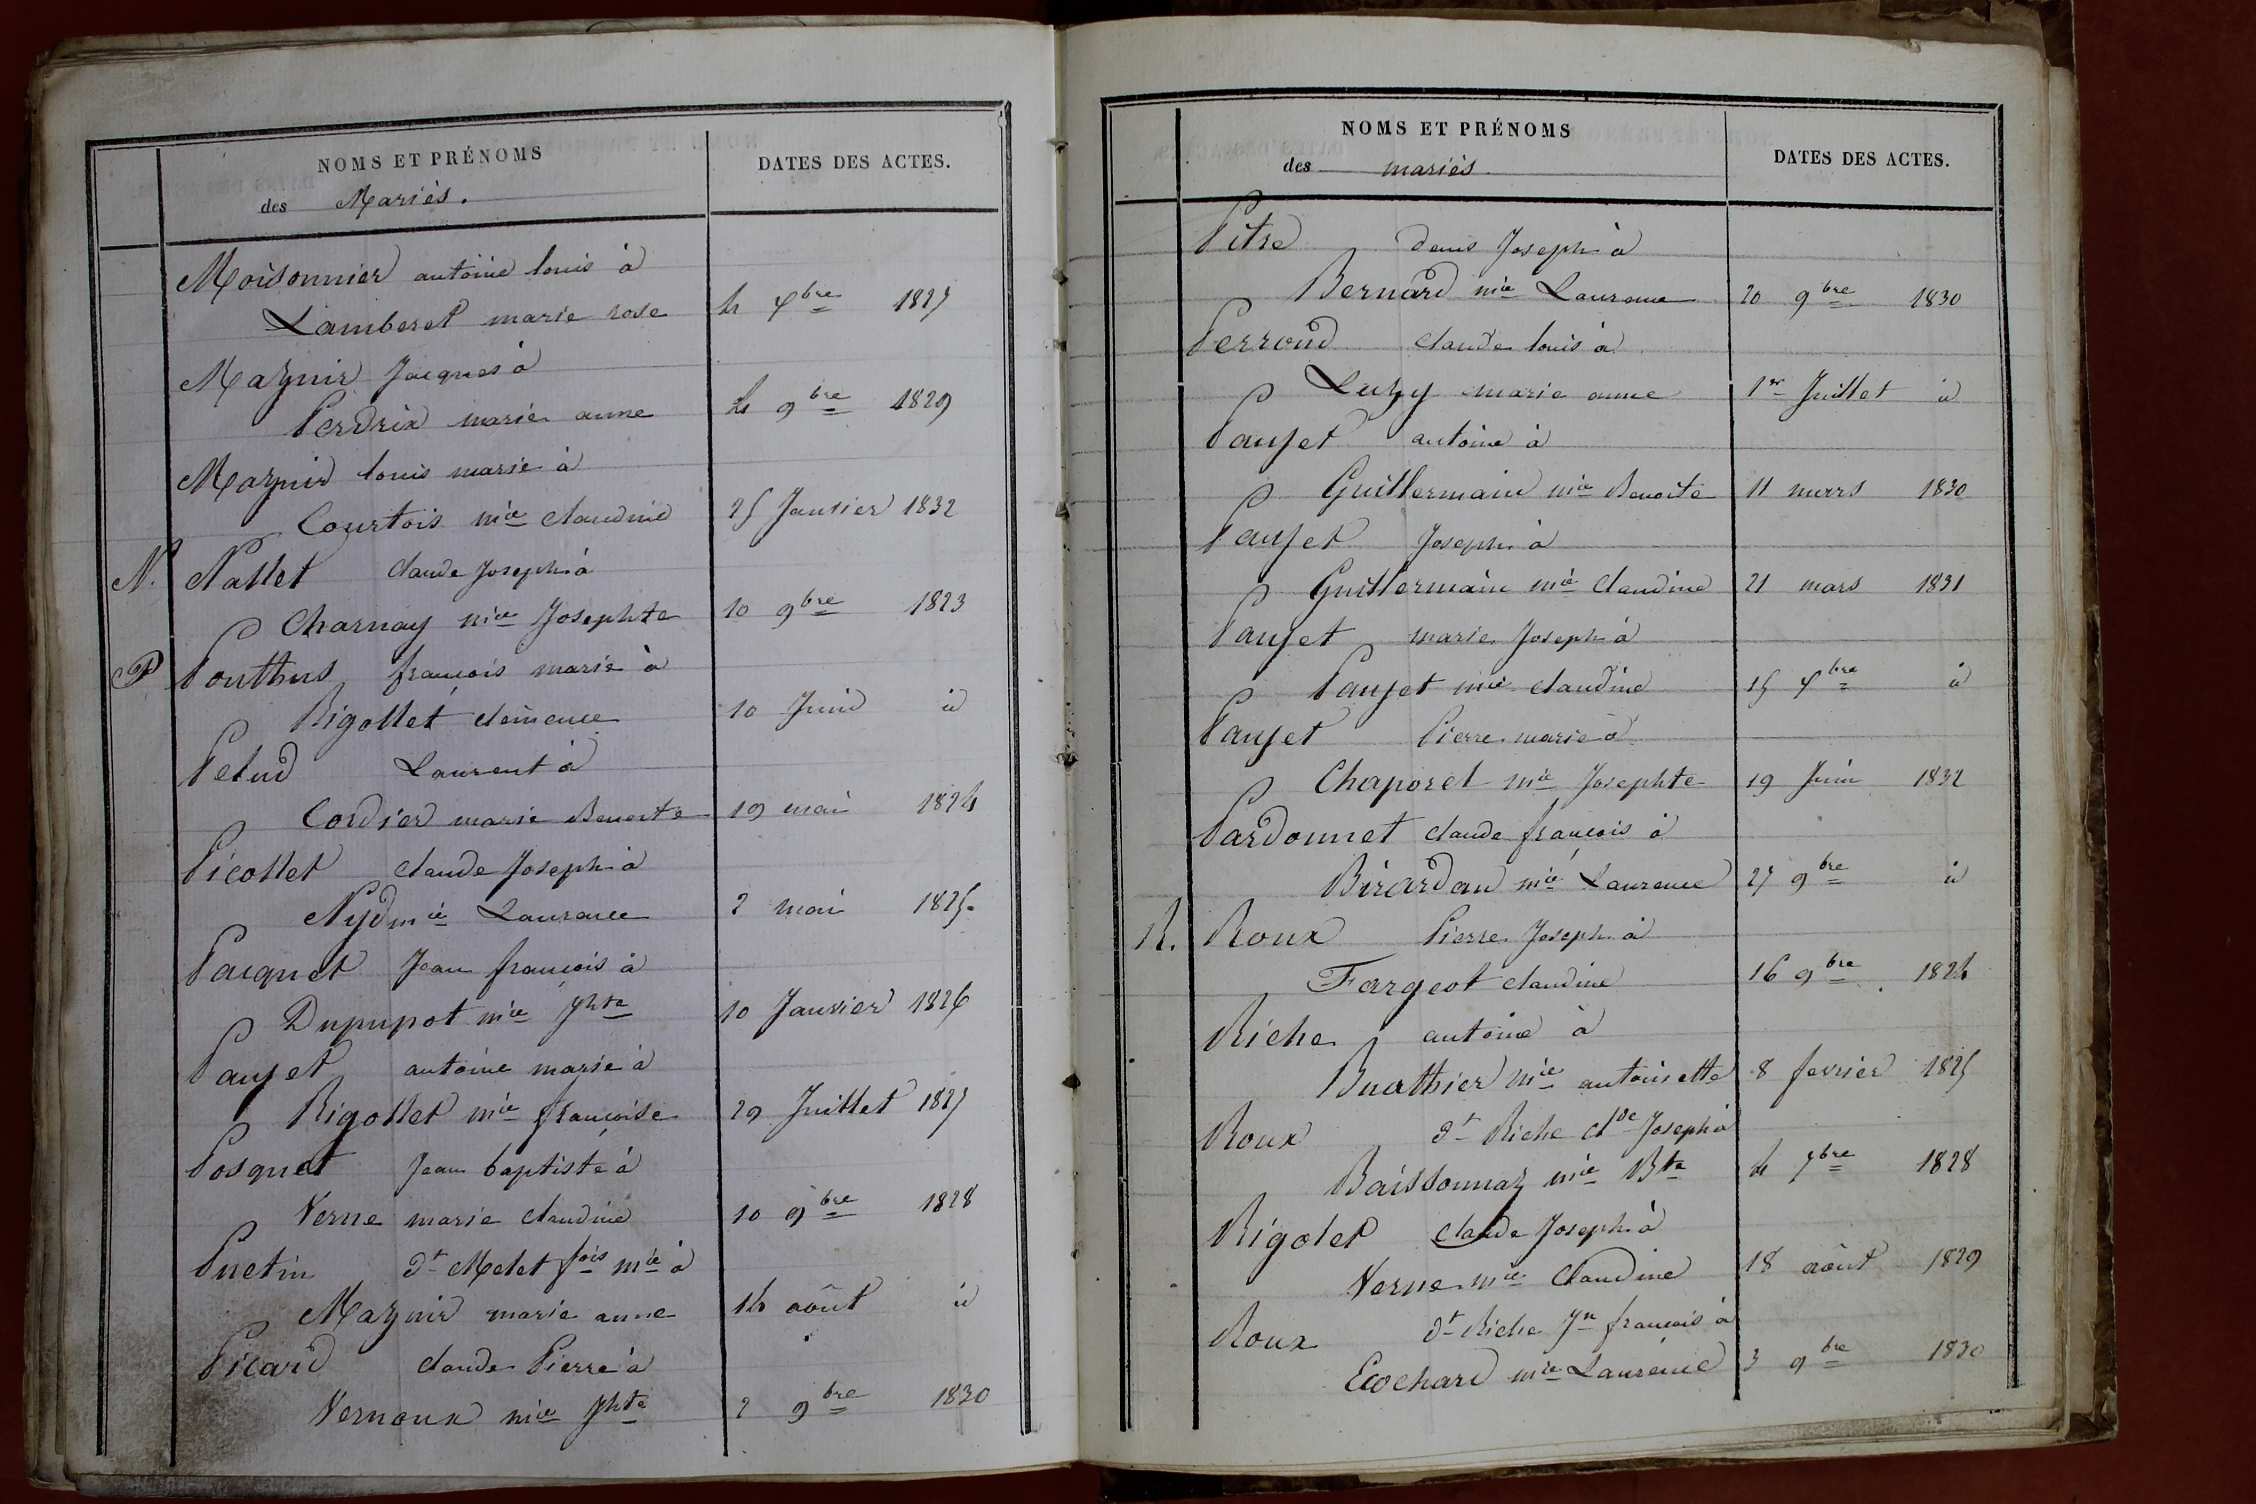 NOMS ET PRÉNOMS
des Mariés.
DATES DES ACTES.
Moisonnier antoine louis à
Lamberet marie rose 4 Xbre 1827
Maznir Jacques à
Perdrix marie anne 4 9bre 1829
Maznir louis marie à
Courtois mie claudine 25 Janvier 1832
N. Nallet claude Joseph à
Charnay mie Josephte 10 9bre 1823
P Pouthus francois marie à
Rigollet clemence 10 Juin id
Pelud Laurent à
Cordier marie Benoite 19 mai 1824
Picollet claude Joseph à
Nyd mie Laurence 2 mai 1825.
Paquet Jean francois à
Dupupot mie Jhte 10 Janvier 1826
Pauget antoine marie à
Rigollet mie francoise 29 Juillet 1827
Posquet Jean baptiste à
Verne marie claudine 10 9bre 1828
Puetin dt Melet fois mie à
Maznir marie anne 14 août id
Picard claude Pierre à
Vernoux mie Jhte 2 9bre 1830
NOMS ET PRÉNOMS
des mariés
DATES DES ACTES.
Pitre denis Joseph à
Bernard mie Laurence 20 9bre 1830
Perroud claude louis à
Luzy marie anne 1er Juillet id
Pauget antoine à
Guillermain mie Benoite 11 mars 1830
Pauget Joseph à
Guillermain mie claudine 21 mars 1831
Pauget marie Joseph à
Pauget mie claudine 15 Xbre id
Pauget Pierre marie à
Chaporel mie Josephte 19 Juin 1832
Pardonnet claude francois à
Birardan mie Laurence 27 9bre id
R. Roux Pierre Joseph à
Fargeot claudine 16 9bre 1824
Riche antoine à
Buathier mie antoinette 8 fevrier 1825
Roux dt Riche clde Joseph à
Baissonnaz mie Bte 4 7bre 1828
Rigolet claude Joseph à
Verne mie claudine 18 août 1829
Roux dt Riche Jn francois à
Ecochard mie Laurence 3 9bre 1830